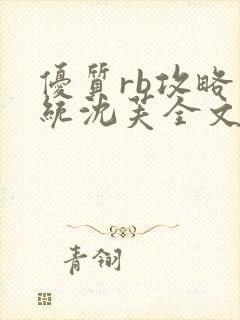 優質rb攻略
統沈芙全文
青翎